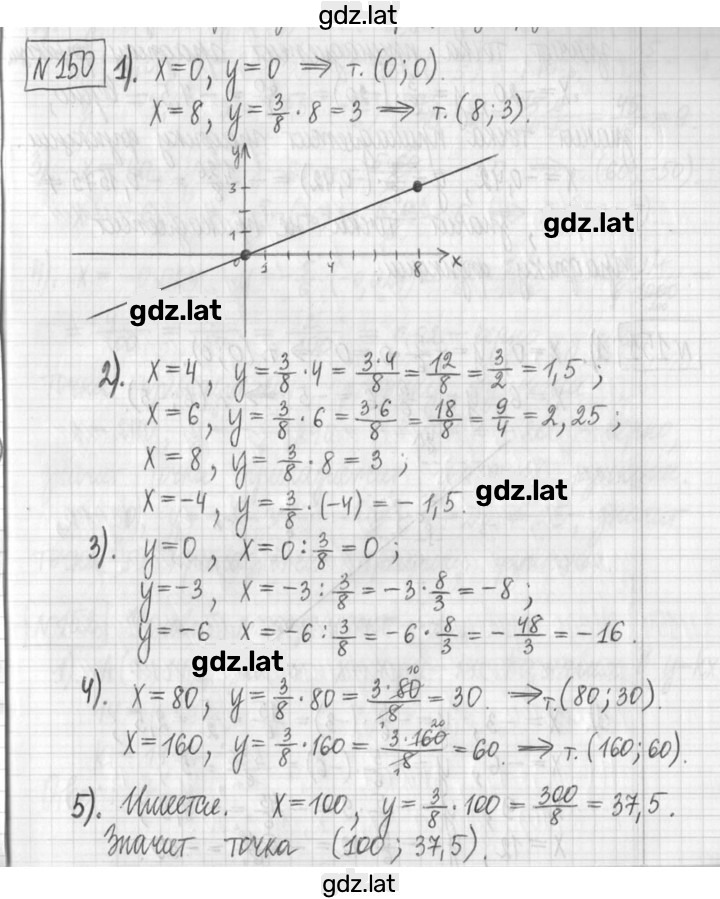 gdz.lat
№150 1). x=0, y=0 ⟹ т. (0;0).
x=8, y=3/8·8=3 ⟹ т. (8;3).
y
3
1
0 1 4 8 x
gdz.lat
gdz.lat
2). x=4, y=3/8·4=3·4/8=12/8=3/2=1,5;
x=6, y=3/8·6=3·6/8=18/8=9/4=2,25;
x=8, y=3/8·8=3;
x=-4, y=3/8·(-4)=-1,5.
gdz.lat
3). y=0, x=0:3/8=0;
y=-3, x=-3:3/8=-3·8/3=-8;
y=-6 x=-6:3/8=-6·8/3=-48/3=-16.
gdz.lat
4). x=80, y=3/8·80=3·80/8=30. ⟹ т.(80;30).
x=160, y=3/8·160=3·160/8=60. ⟹ т.(160;60).
5). Имеется. x=100, y=3/8·100=300/8=37,5.
Значит точка (100; 37,5).
gdz.lat